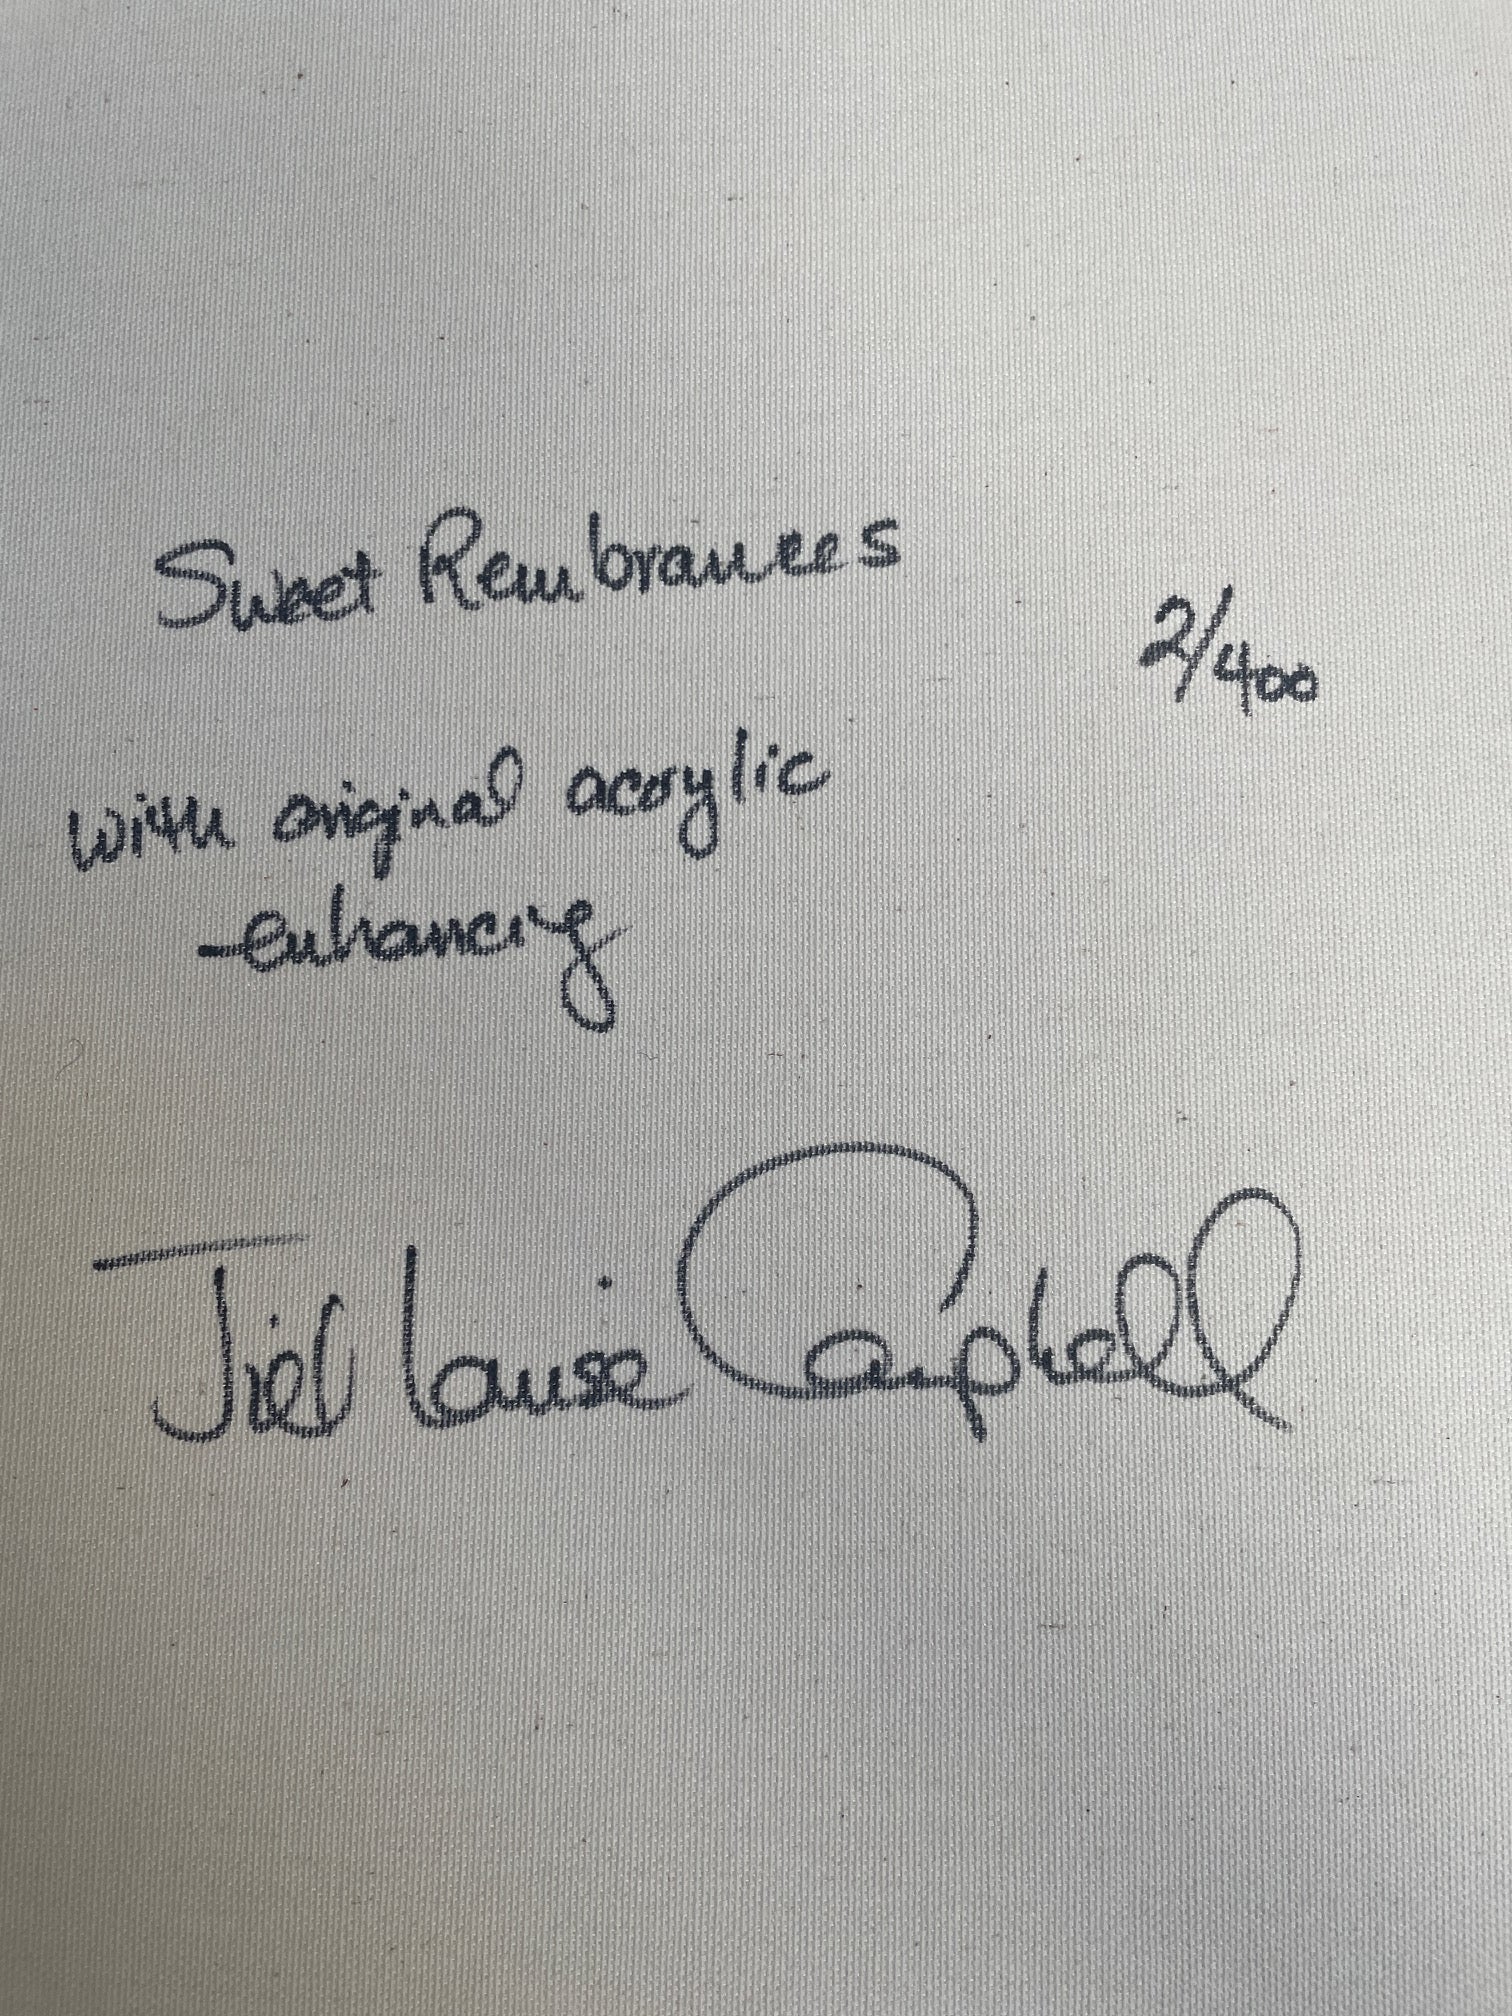 Sweet Rembrances
2/400
with original acrylic
enhancing
Jill Louise Campbell